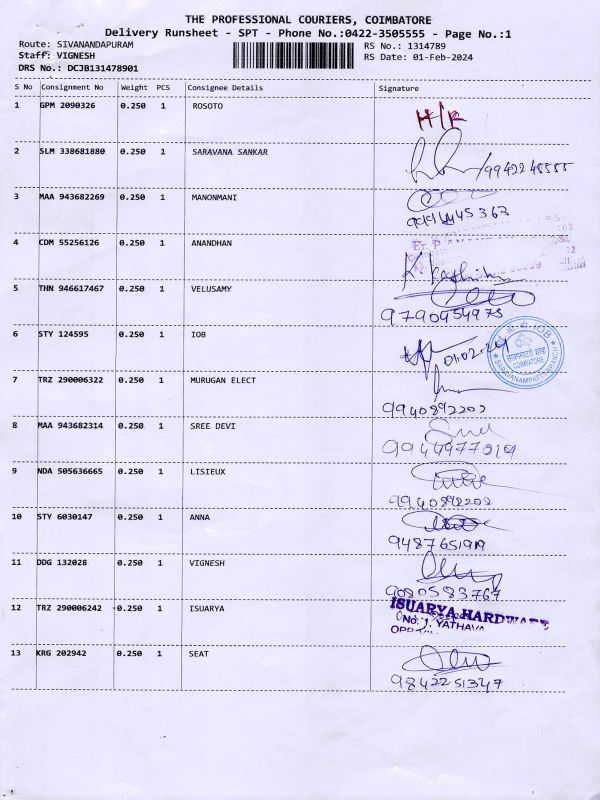 THE PROFESSIONAL COURIERS, COIMBATORE
Delivery Runsheet - SPT - Phone No.:0422-3505555 - Page No.:1
Route: SIVANANDAPURAM RS No.: 1314789
Staff: VIGNESH RS Date: 01-Feb-2024
DRS No.: DCJB131478901
S No Consignment No Weight PCS Consignee Details Signature
1 GPM 2090326 0.250 1 ROSOTO
2 SLM 338681880 0.250 1 SARAVANA SANKAR
/9942245555
3 MAA 943682269 0.250 1 MANONMANI
4 CDM 55256126 0.250 1 ANANDHAN
5 THN 946617467 0.250 1 VELUSAMY
9790454973
6 STY 124595 0.250 1 IOB
01-02-24
COIMBATORE
SARAVANAMPATTI BRANCH
7 TRZ 290006322 0.250 1 MURUGAN ELECT
9940892202
8 MAA 943682314 0.250 1 SREE DEVI
9 NDA 505636665 0.250 1 LISIEUX
9940892202
10 STY 6030147 0.250 1 ANNA
9487651919
11 DDG 132028 0.250 1 VIGNESH
9080583767
12 TRZ 290006242 0.250 1 ISUARYA
ISUARYA HARDWARE
No: 1, YATHAVA
13 KRG 202942 0.250 1 SEAT
9842251347